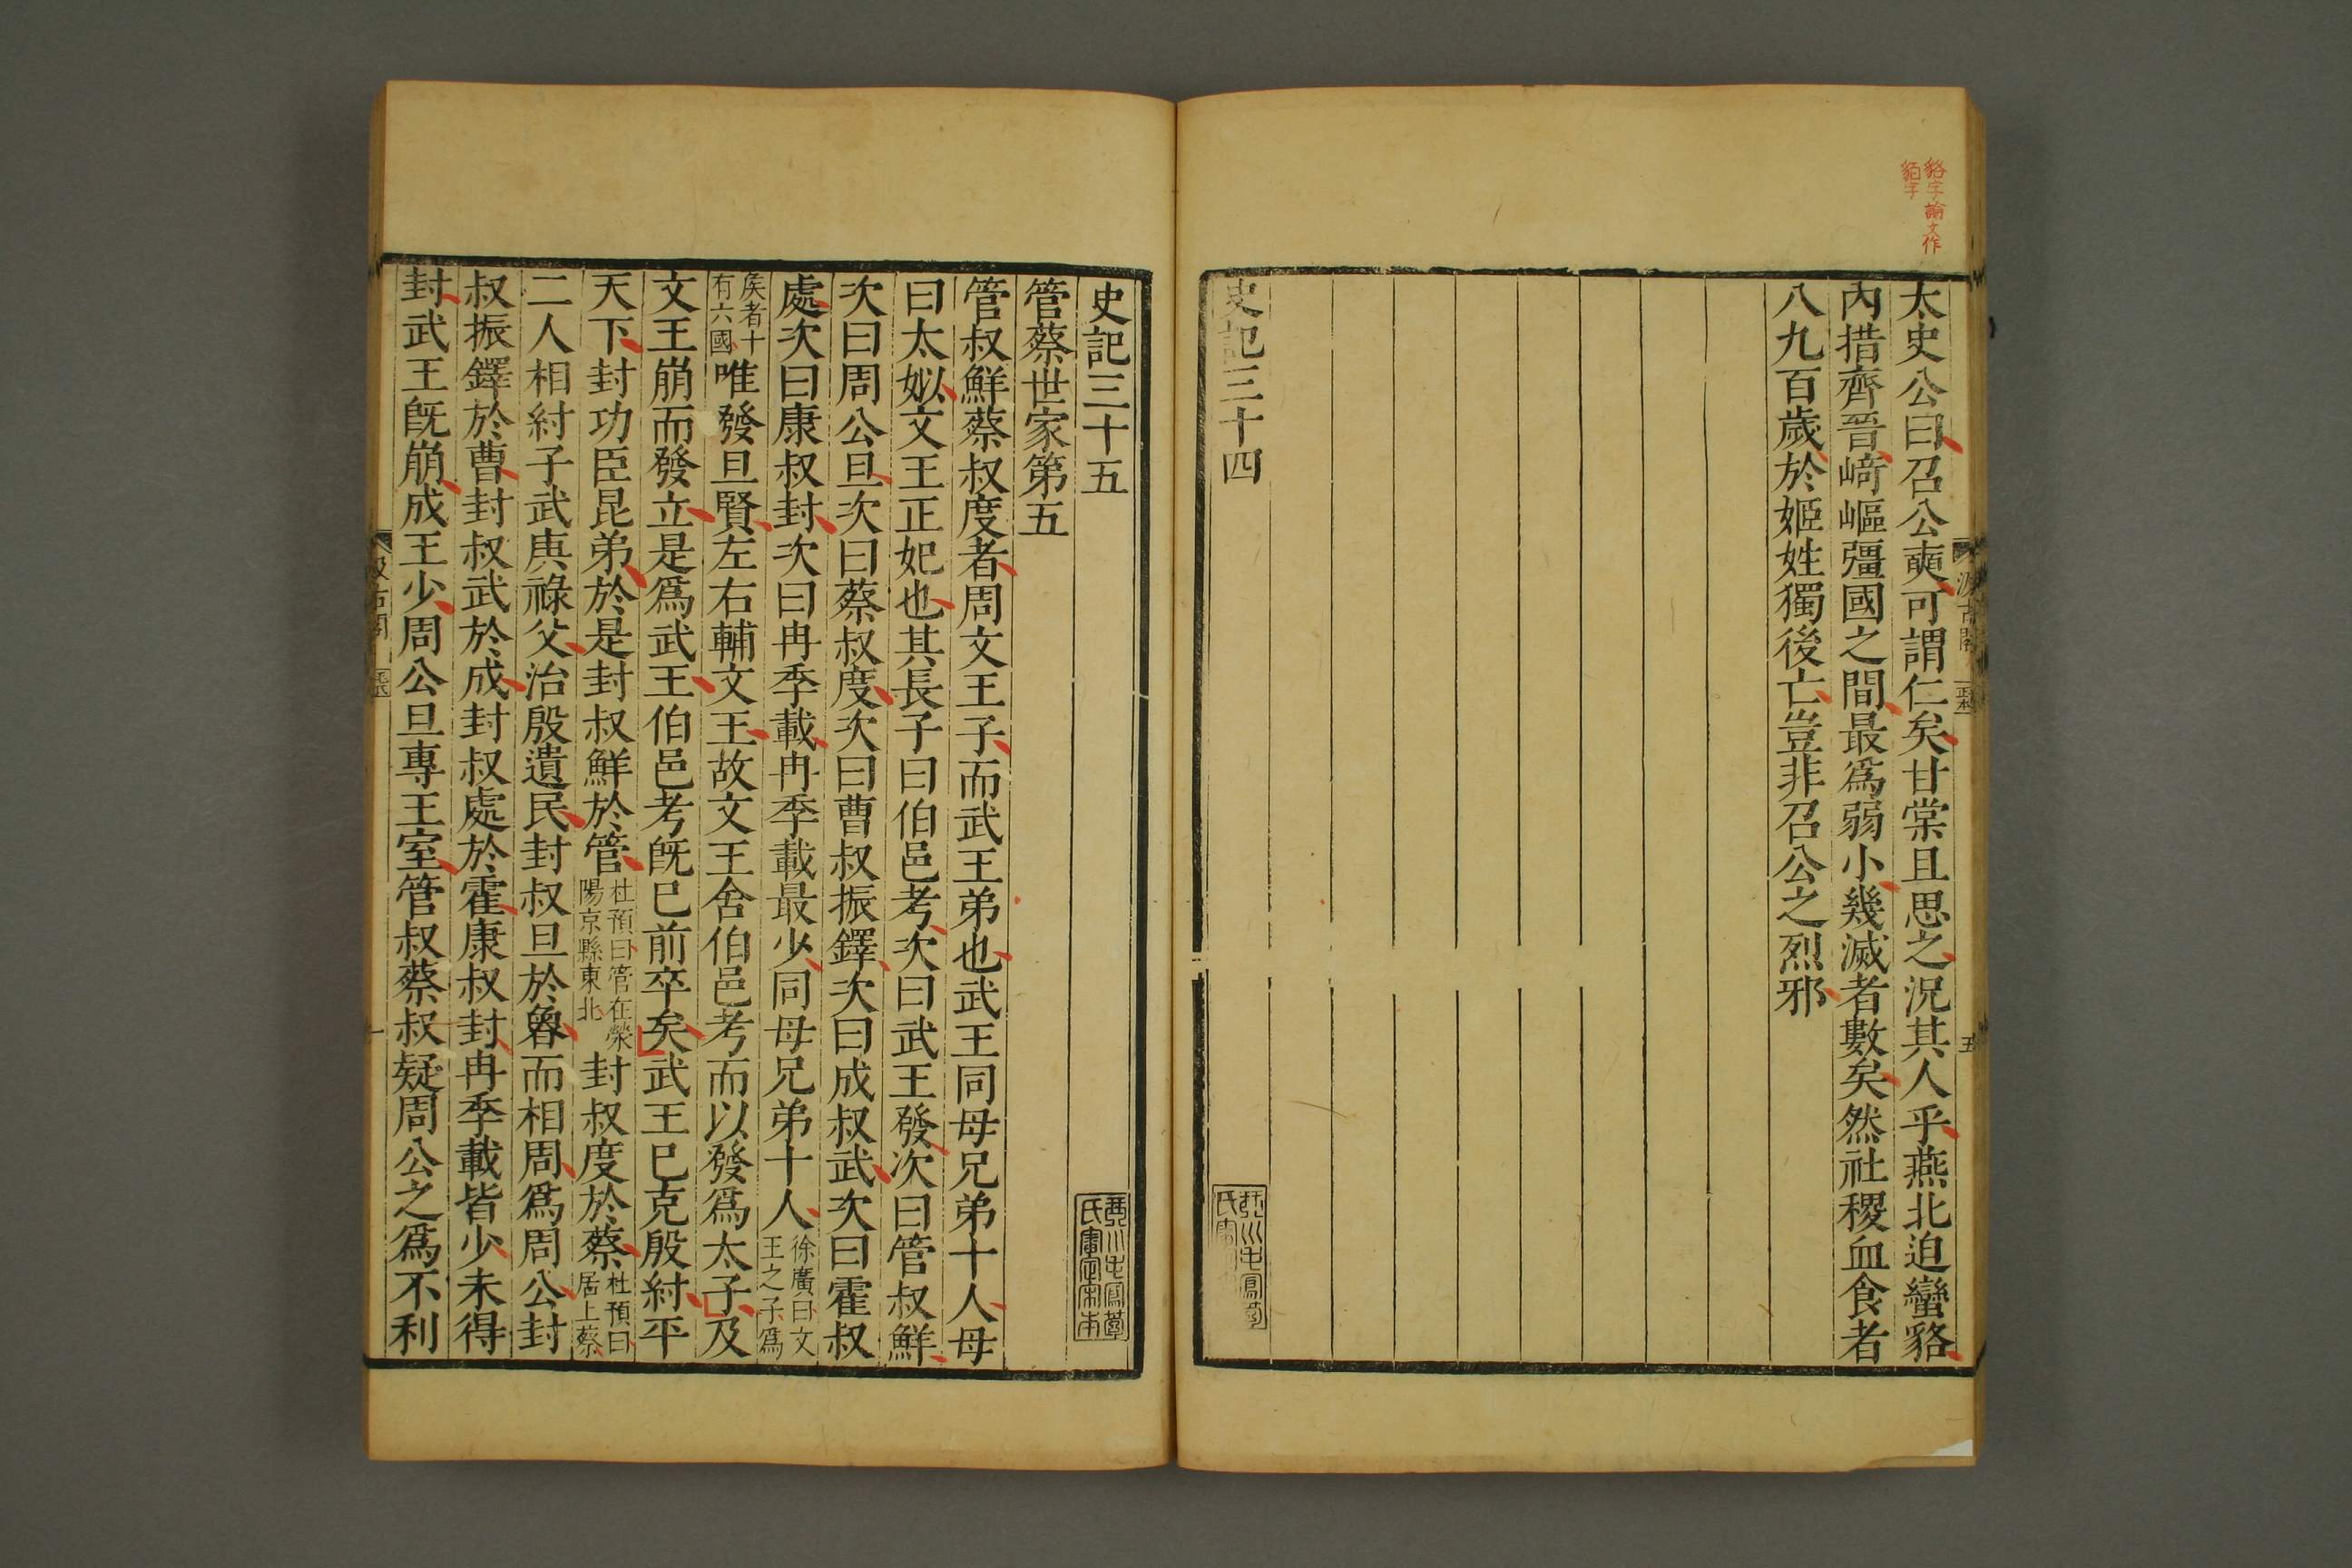 貉字論文作
貊字
太史公曰召公奭可謂仁矣甘棠且思之況其人乎燕北迫蠻貉
內措齊晉崎嶇彊國之間最爲弱小幾滅者數矣然社稷血食者
八九百歲於姬姓獨後亡豈非召公之烈邪
史記三十四
史記三十五
管蔡世家第五
管叔鮮蔡叔度者周文王子而武王弟也武王同母兄弟十人母
曰太姒文王正妃也其長子曰伯邑考次曰武王發次曰管叔鮮
次曰周公旦次曰蔡叔度次曰曹叔振鐸次曰成叔武次曰霍叔
處次曰康叔封次曰冉季載冉季載最少同母兄弟十人徐廣曰文王之子爲
矦者十有六國唯發旦賢左右輔文王故文王舍伯邑考而以發爲太子及
文王崩而發立是爲武王伯邑考旣已前卒矣武王已克殷紂平
天下封功臣昆弟於是封叔鮮於管杜預曰管在滎陽京縣東北封叔度於蔡杜預曰居上蔡
二人相紂子武庚祿父治殷遺民封叔旦於魯而相周爲周公封
叔振鐸於曹封叔武於成封叔處於霍康叔封冉季載皆少未得
封武王旣崩成王少周公旦專王室管叔蔡叔疑周公之爲不利